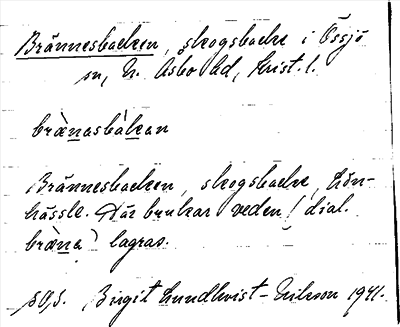 Brännesbacken, skogsbacke i Össjö
sn, N. Åsbo hd, Krist. l.
brä̀nasbákan
Brännesbacken, skogsbacke,
hässle. Där brukar veden (dial.
bräna) lagras.
SOS. Birgit Lundkvist-Erikson 1941.